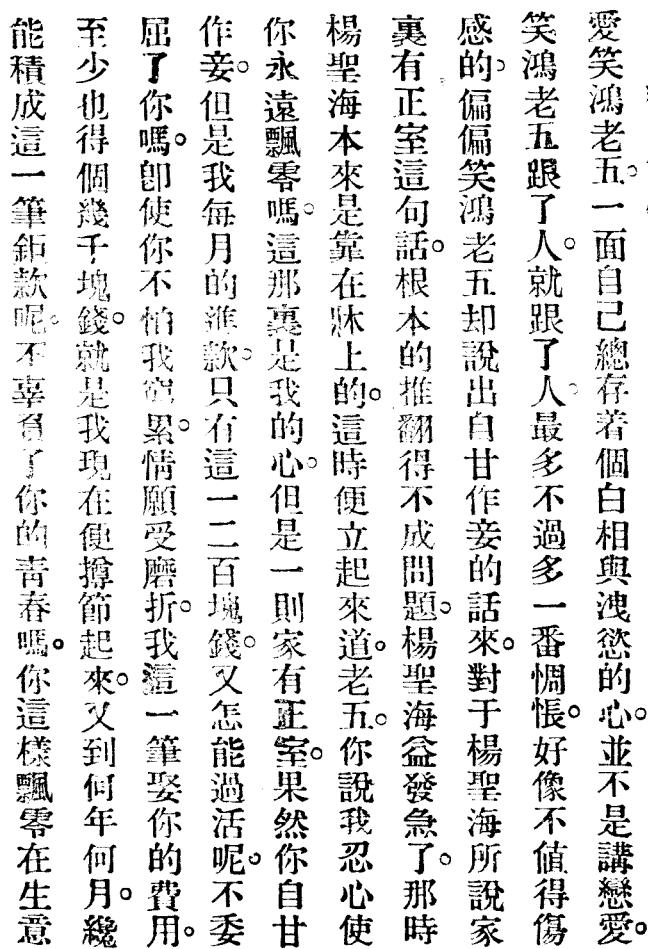 愛笑鴻老五。一面自己總存着個白相與洩慾的心。並不是講戀愛。
笑鴻老五跟了人。就跟了人。最多不過多一番惆悵。好像不值得傷
感的。偏偏笑鴻老五却說出自甘作妾的話來。對于楊聖海所說家
裏有正室這句話。根本的推翻得不成問題。楊聖海益發急了。那時
楊聖海本來是靠在牀上的。這時便立起來道。老五。你說我忍心使
你永遠飄零嗎。這那裏是我的心。但是一則家有正室。果然你自甘
作妾。但是我每月的進款。只有這一二百塊錢。又怎能過活呢。不委
屈了你嗎。卽使你不怕我窮累。情願受磨折。我這一筆娶你的費用。
至少也得個幾千塊錢。就是我現在便撙節起來。又到何年何月。纔
能積成這一筆鉅款呢。不辜負了你的靑春嗎。你這樣飄零在生意